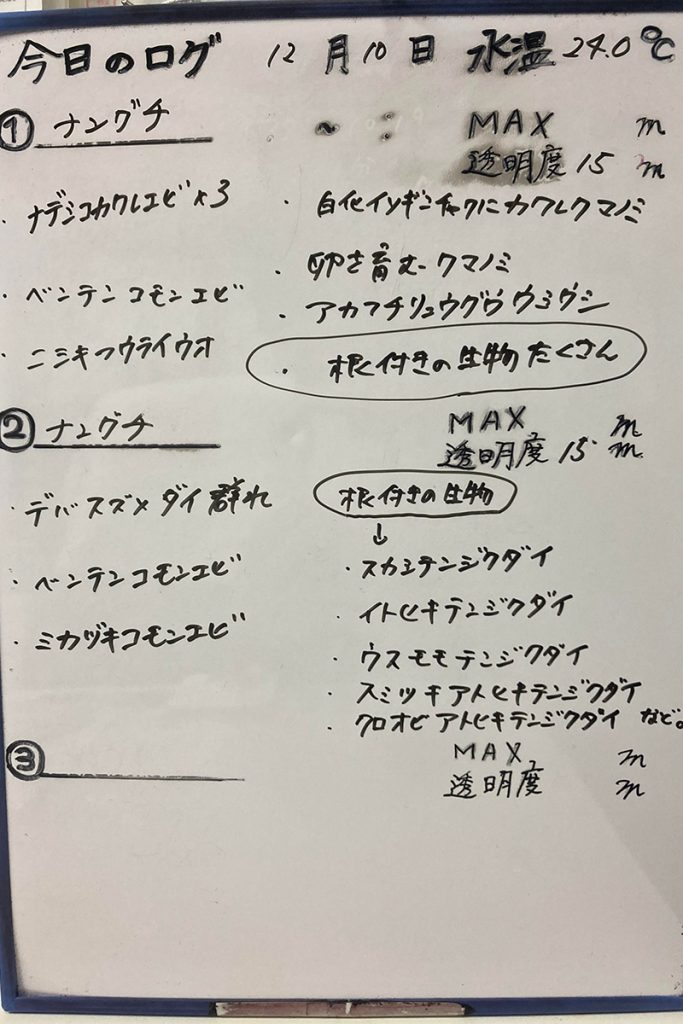 今日のログ 12月10日 水温 24.0℃
① ナングチ ~ : MAX m
透明度 15 m
・ナデシコカクレエビ×3
・ベンテンコモンエビ
・ニシキフウライウオ
・白化イソギンチャクにカクレクマノミ
・卵を育むークマノミ
・アカフチリュウグウウミウシ
・根付きの生物たくさん
② ナングチ MAX m
透明度 15 m
・デバスズメダイ群れ
・ベンテンコモンエビ
・ミカヅキコモンエビ
根付きの生物
↓
・スカシテンジクダイ
・イトヒキテンジクダイ
・ウスモモテンジクダイ
・スミツキアトヒキテンジクダイ
・クロオビアトヒキテンジクダイ など。
③ MAX m
透明度 m